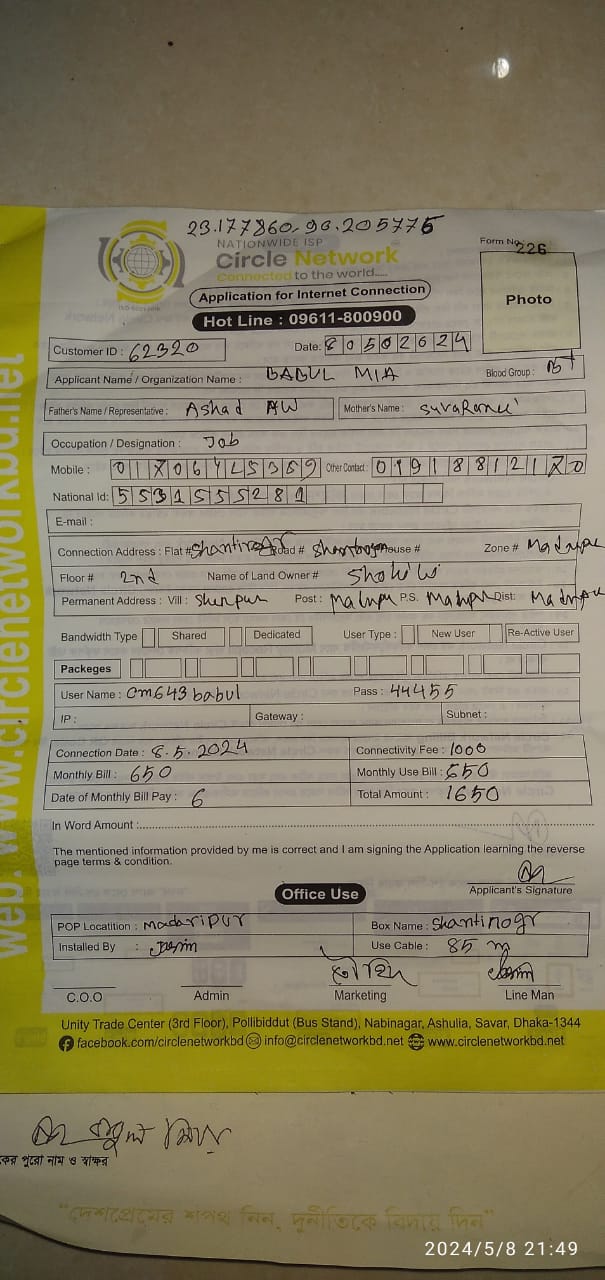 23.177860-90.205775
NATIONWIDE ISP
Circle Network
Connected to the world.....
Form No. 226
Application for Internet Connection
Photo
Hot Line : 09611-800900
Customer ID : 62320 Date: 8 0 5 0 2 0 2 4
Applicant Name / Organization Name : BABUL MIA Blood Group : B+
Father's Name / Representative : Ashad Mother's Name :
Occupation / Designation : Job
Mobile : Other Contact :
National Id: 5 5 3 1 5 5 5 2 8 1
E-mail :
Connection Address : Flat # Road # House # Zone #
Floor # 2nd Name of Land Owner #
Permanent Address : Vill : Sherpur Post : P.S. Dist:
Bandwidth Type Shared Dedicated User Type : New User Re-Active User
Packeges
User Name : cm643babul Pass : 44455
IP : Gateway : Subnet :
Connection Date : 8.5.2024 Connectivity Fee : 1000
Monthly Bill : 650 Monthly Use Bill : 650
Date of Monthly Bill Pay : 6 Total Amount : 1650
In Word Amount :
The mentioned information provided by me is correct and I am signing the Application learning the reverse
page terms & condition.
Applicant's Signature
Office Use
POP Locatition : Madaripur Box Name : Shantinogr
Installed By : Use Cable : 85 m
C.O.O Admin Marketing Line Man
Unity Trade Center (3rd Floor), Pollibiddut (Bus Stand), Nabinagar, Ashulia, Savar, Dhaka-1344
facebook.com/circlenetworkbd info@circlenetworkbd.net www.circlenetworkbd.net
web: www.circlenetworkbd.net
পুরো নাম ও স্বাক্ষর
"দেশপ্রেমের শপথ নিন, দুর্নীতিকে বিদায় দিন"
2024/5/8 21:49